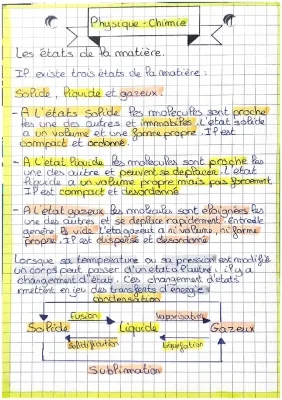 Physique - Chimie
Les états de la matière.
Il existe trois états de la matière :
Solide, liquide et gazeux
- A l'états Solide les molécules sont proche les
une des autres et immobiles. L'état solide
a un volume et une forme propre. Il est
compact et ordonné.
- A l'état liquide les molécules sont proche les
une des autre et peuvent se déplacer. L'état
liquide a un volume propre mais pas forcement
Il est compact et désordonné
- A l'état gazeux les molécules sont éloignées les
une des autres et se déplace rapidement. Entre elle
génère le vide. L'état gazeux a ni volume, ni forme
propre. Il est dispersé et désordonné
Lorsque sa température ou sa pression est modifié
un corps peut passer d'un état à l'autre : il y a
changement d'états. Ces changement d'états
mettent en jeu des transferts d'énergie.
condensation
Fusion
vaporisation
Solide
Liquide
Gazeux
Solidification
Liquéfaction
Sublimation